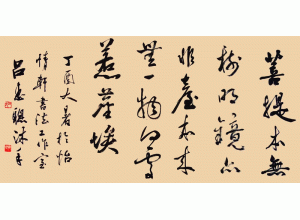 菩提本無
樹明鏡亦
非臺本來
無一物何處
惹塵埃
丁酉大暑於怡
情軒書法工作室
呂 沐手